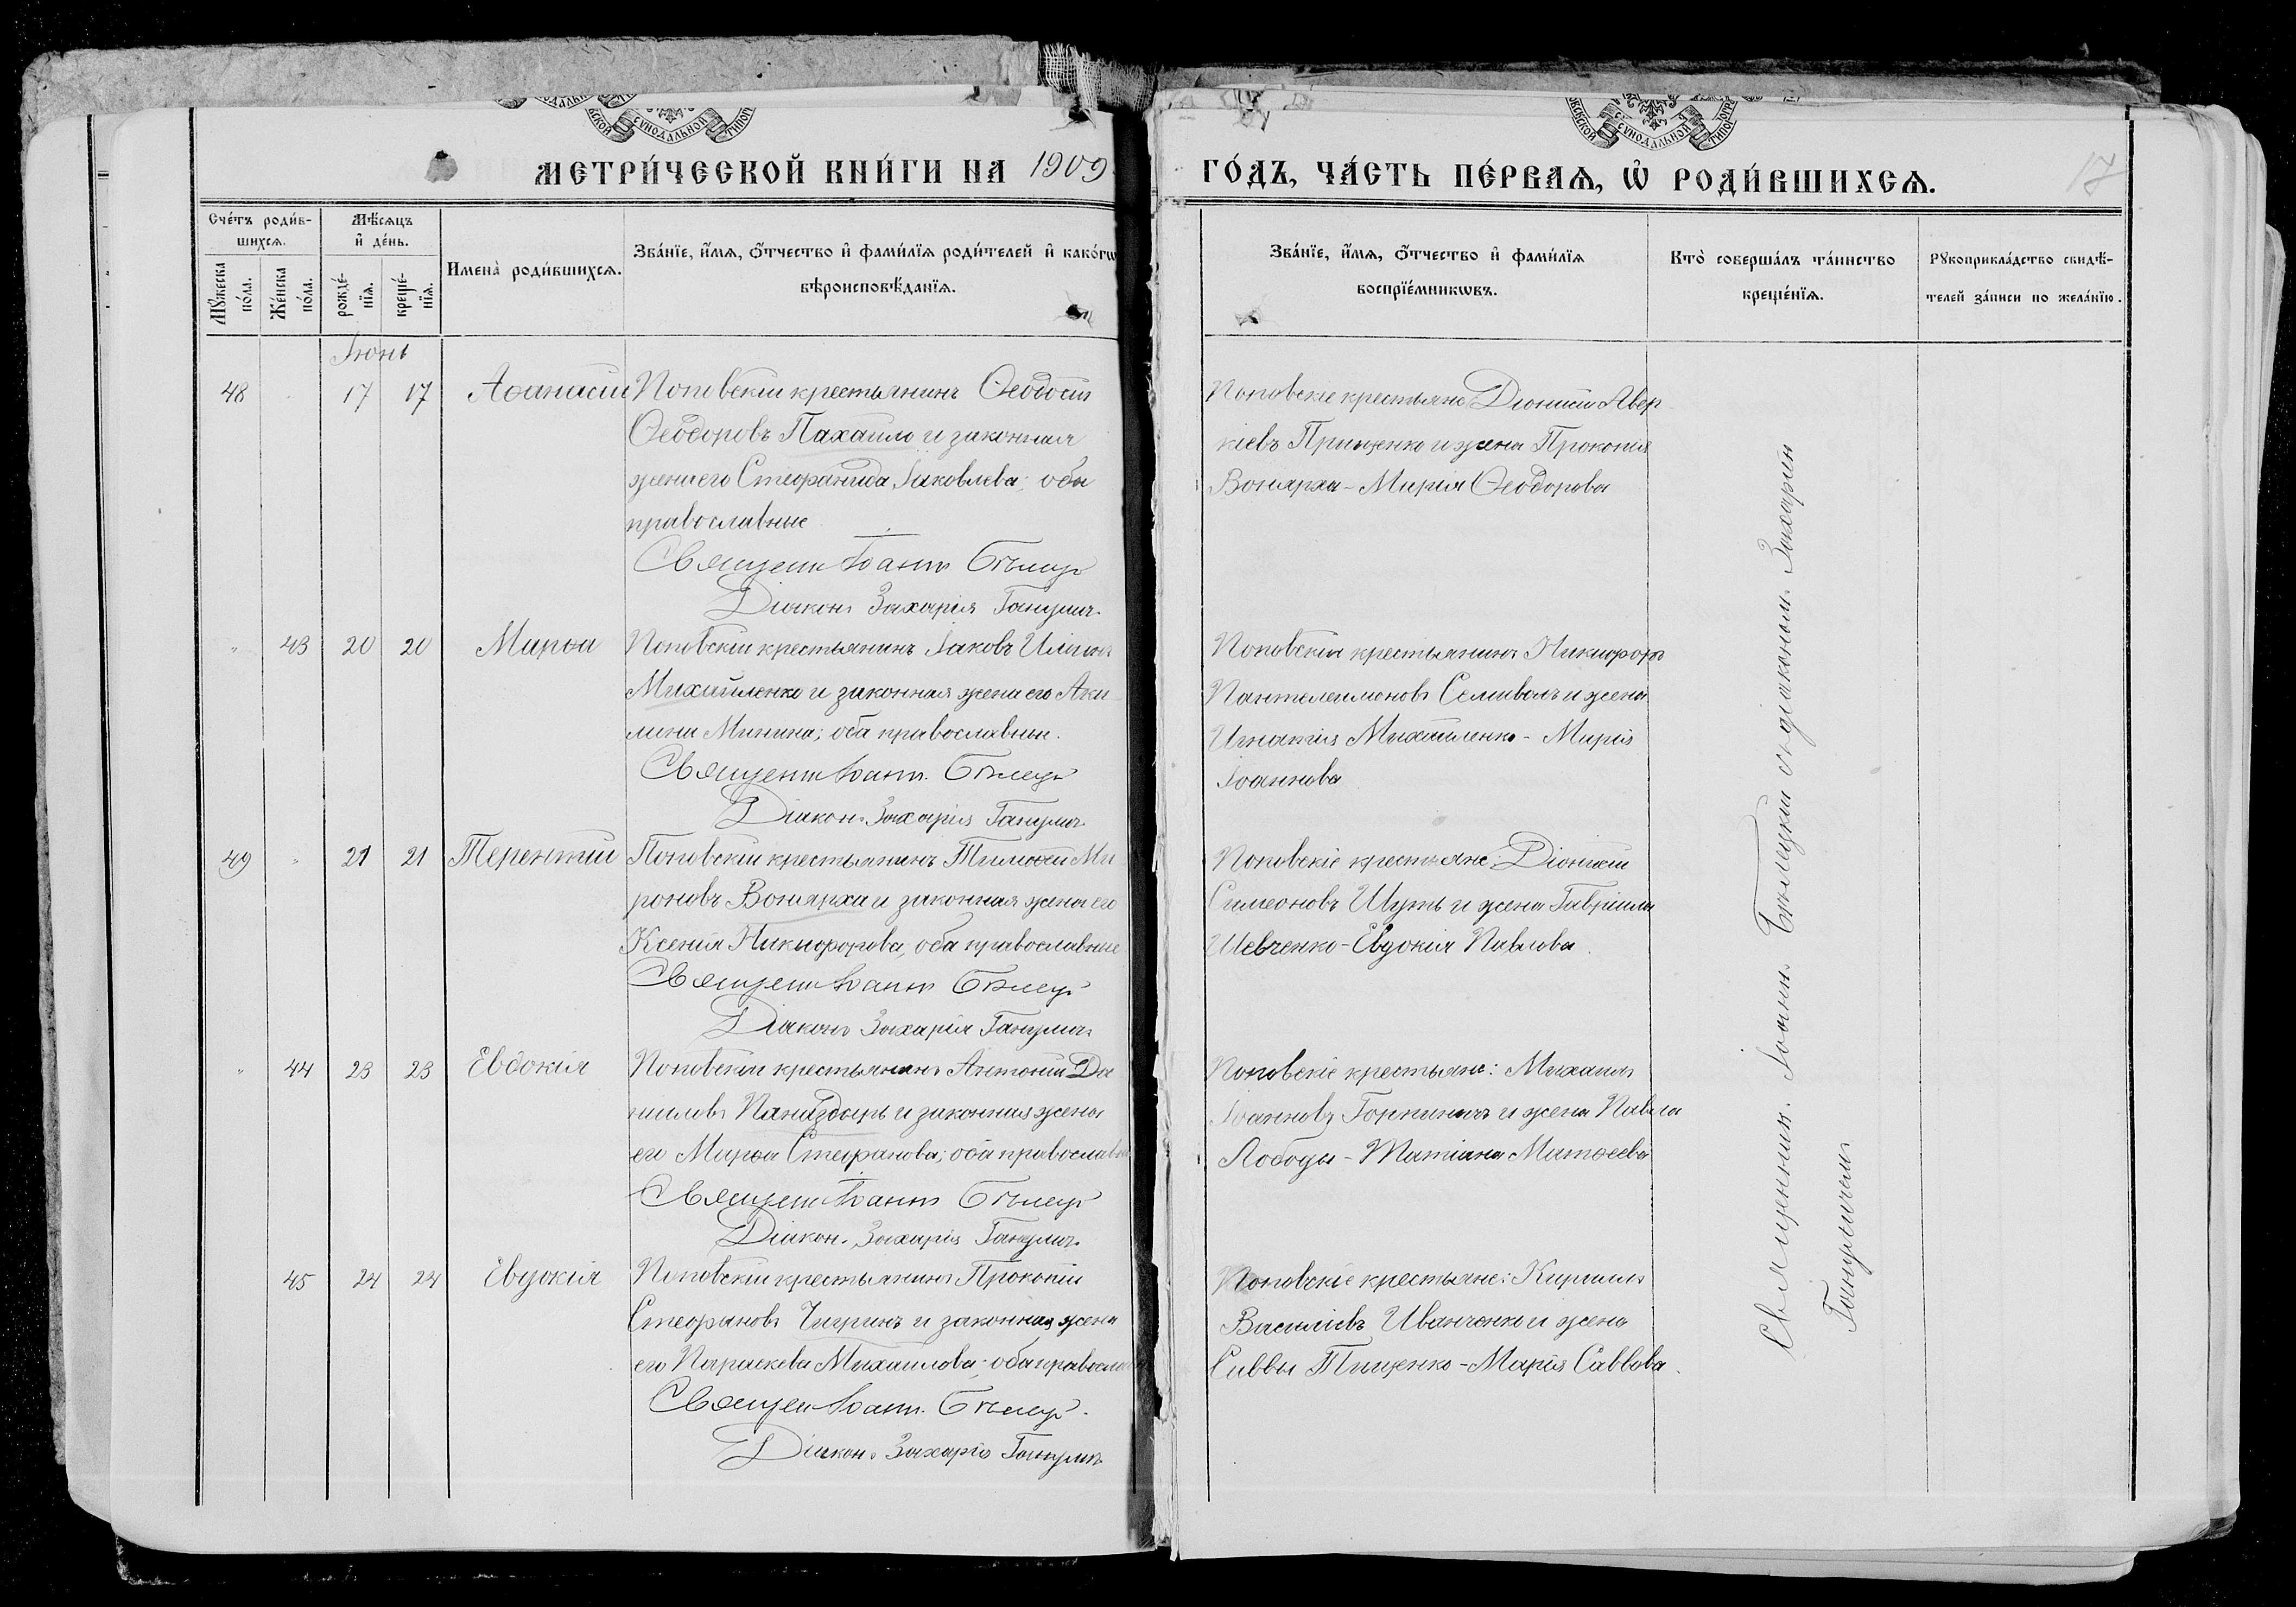 МЕТРИ́ЧЕСКОЙ КНИ́ГИ НА 1909
ГО́ДЪ, ЧА́СТЬ ПЕ́РВАѦ, Ѡ҆ РОДИ́ВШИХСѦ.
17
Сче́тъ роди́в-
шихсѧ.
Мꙋ́жеска по́ла.
Же́нска по́ла.
Мѣ́сѧцъ
и҆ де́нь.
рожде́-
нїѧ.
креще́-
нїѧ.
Имена̀ роди́вшихсѧ.
Зва́нїе, и҆́мѧ, ѻ҆́тчество и҆ фами́лїѧ роди́телей и҆ како́гѡ
вѣроисповѣ́данїѧ.
Зва́нїе, и҆́мѧ, ѻ҆́тчество и҆ фами́лїѧ
воспрїе́мникѡвъ.
Кто̀ соверша́лъ та́инство
креще́нїѧ.
Рꙋкоприкла́дство свидѣ́-
телей за́писи по жела́нїю.
Іюнь
48 17 17 Аѳанасій Поповскій крестьянинъ Ѳеодосій
Ѳеодоровъ Пахаило и законная
жена его Стефанида Іаковлева; оба
православные
Священ Іоанн Бѣлец
Діакон Захарія Ганулич
Поповскіе крестьяне Діонисій Авер
кіевъ Прищенко и жена Прокопія
Вонярха - Марія Ѳеодорова
" 43 20 20 Марѳа Поповскій крестьянинъ Іаковъ Иліинъ
Михайленко и законная жена его Аки
лина Минина; оба православны.
Священ Іоанн Бѣлец
Діакон Захарія Ганулич
Поповскій крестьянинъ Никифоръ
Пантелеимоновъ Семиволъ и жена
Игнатія Михайленко - Марія
Іоаннова
49 " 21 21 Терентій Поповскій крестьянинъ Тимоѳей Ми
роновъ Вонярха и законная жена его
Ксенія Никифорова, оба православные
Священ Іоанн Бѣлец
Діаконъ Захарія Ганулич
Поповскіе крестьяне: Діонисій
Симеоновъ Шуть и жена Гавріила
Шевченко - Евдокія Павлова.
" 44 23 23 Евдокія Поповскій крестьянинъ Антоній Да
ниловъ Паназдырь и законная жена
его Марѳа Стефанова; оба православн
Священ Іоанн Бѣлец
Діакон Захарія Ганулич
Поповскіе крестьяне: Михаилъ
Іоанновъ и жена Павла
Лободы - Татіана Матѳеева
45 24 24 Евдокія Поповскій крестьянинъ Прокопій
Стефановъ Чигринъ и законная жена
его Параскева Михаилова; оба правосла
Священ Іоанн Бѣлец
Діакон Захарія Ганулич
Поповскіе крестьяне: Кириллъ
Василіевъ Иванченко и жена
Саввы Тищенко - Марія Саввова.
Священник Іоанн Бѣлецкій с діаконом Захарій
Гануличем